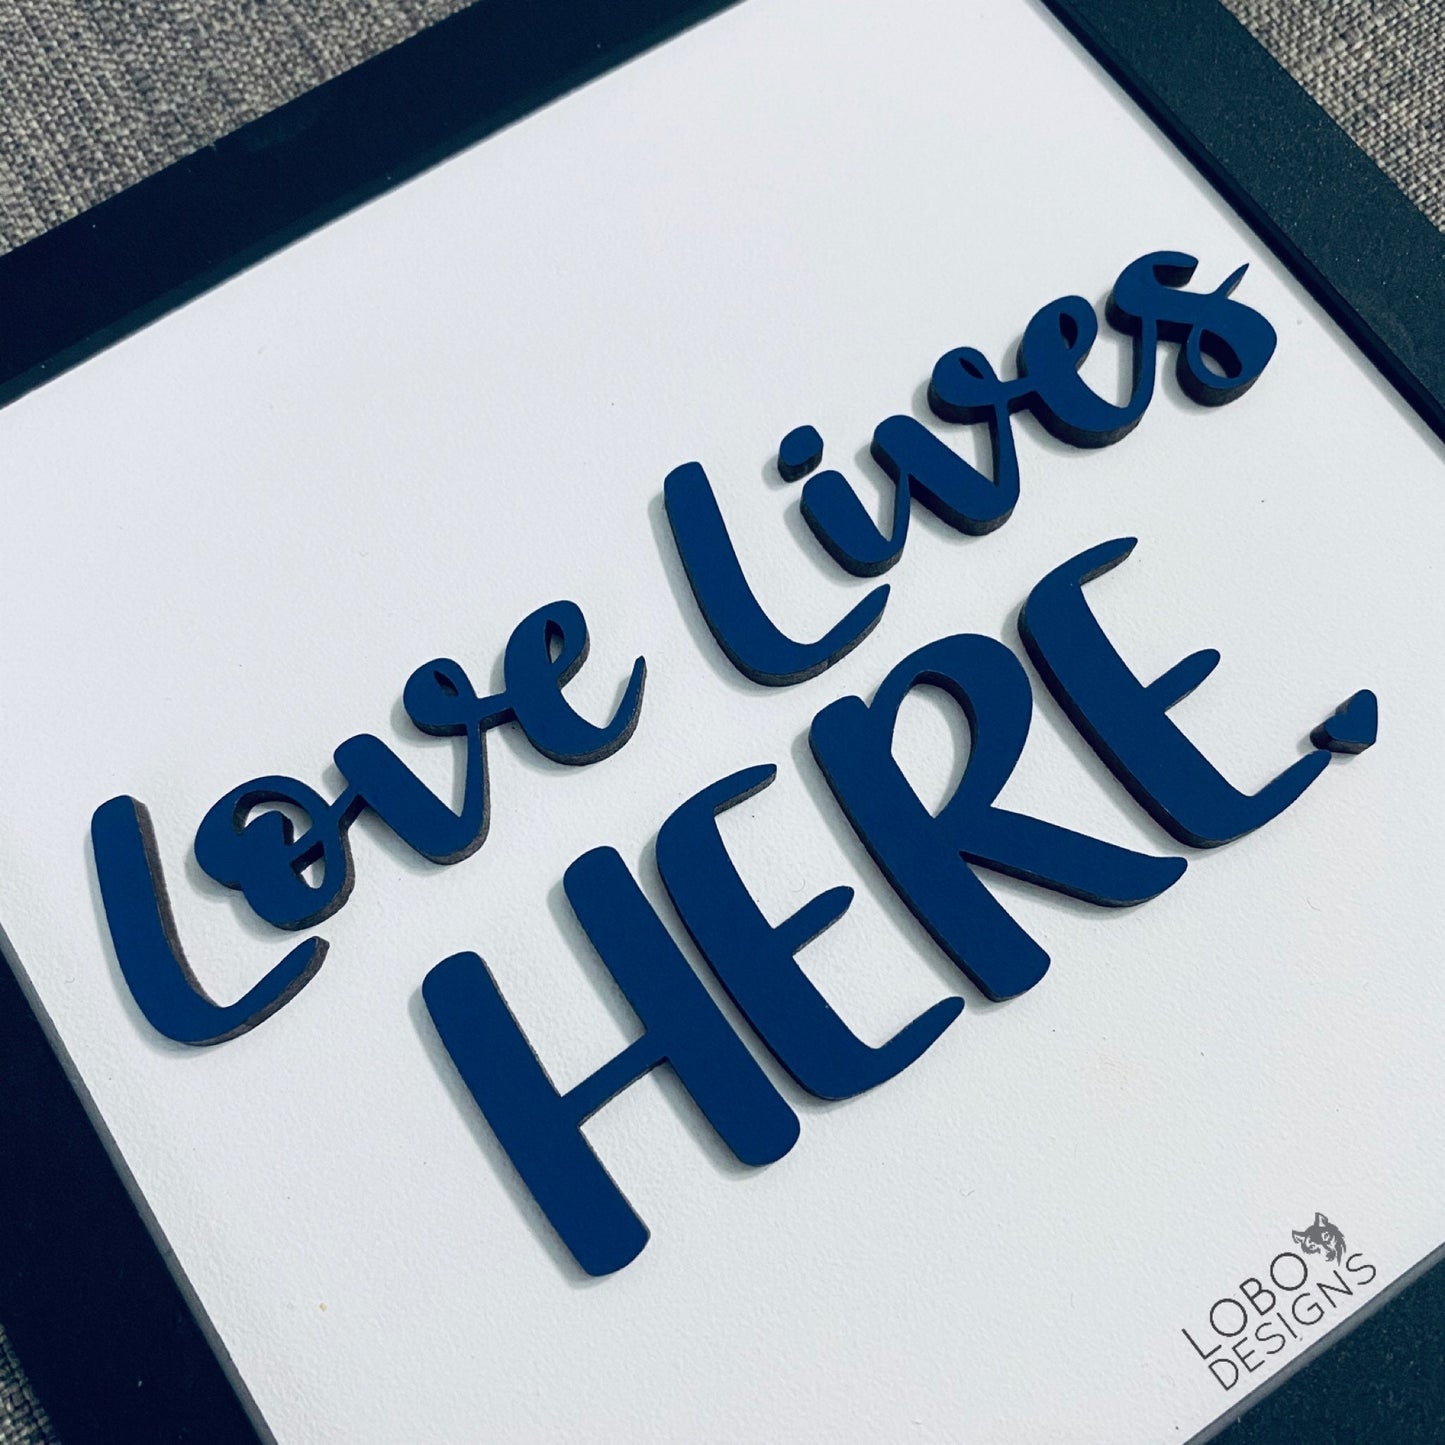 Love Lives
HERE
LOBO
DESIGNS